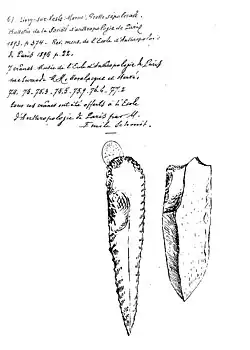 6) Livry-sur-Vesle, Marne, Grotte sépulcrale.
Bulletin de la Société d'anthropologie de Paris
1893. p. 374. Rev. mens. de l'Ecole d'Anthropologie
de Paris 1896 p. 22.
7 crânes Musée de l'Ecole d'Anthropologie de Paris
M. M. Hovelacque et Hervé.
72. 75. 75.3. 75.5. 75.9. 76.4. 77.2
tous ces crânes ont été offerts à l'Ecole
d'Anthropologie de Paris par M.
Emile Schmit.